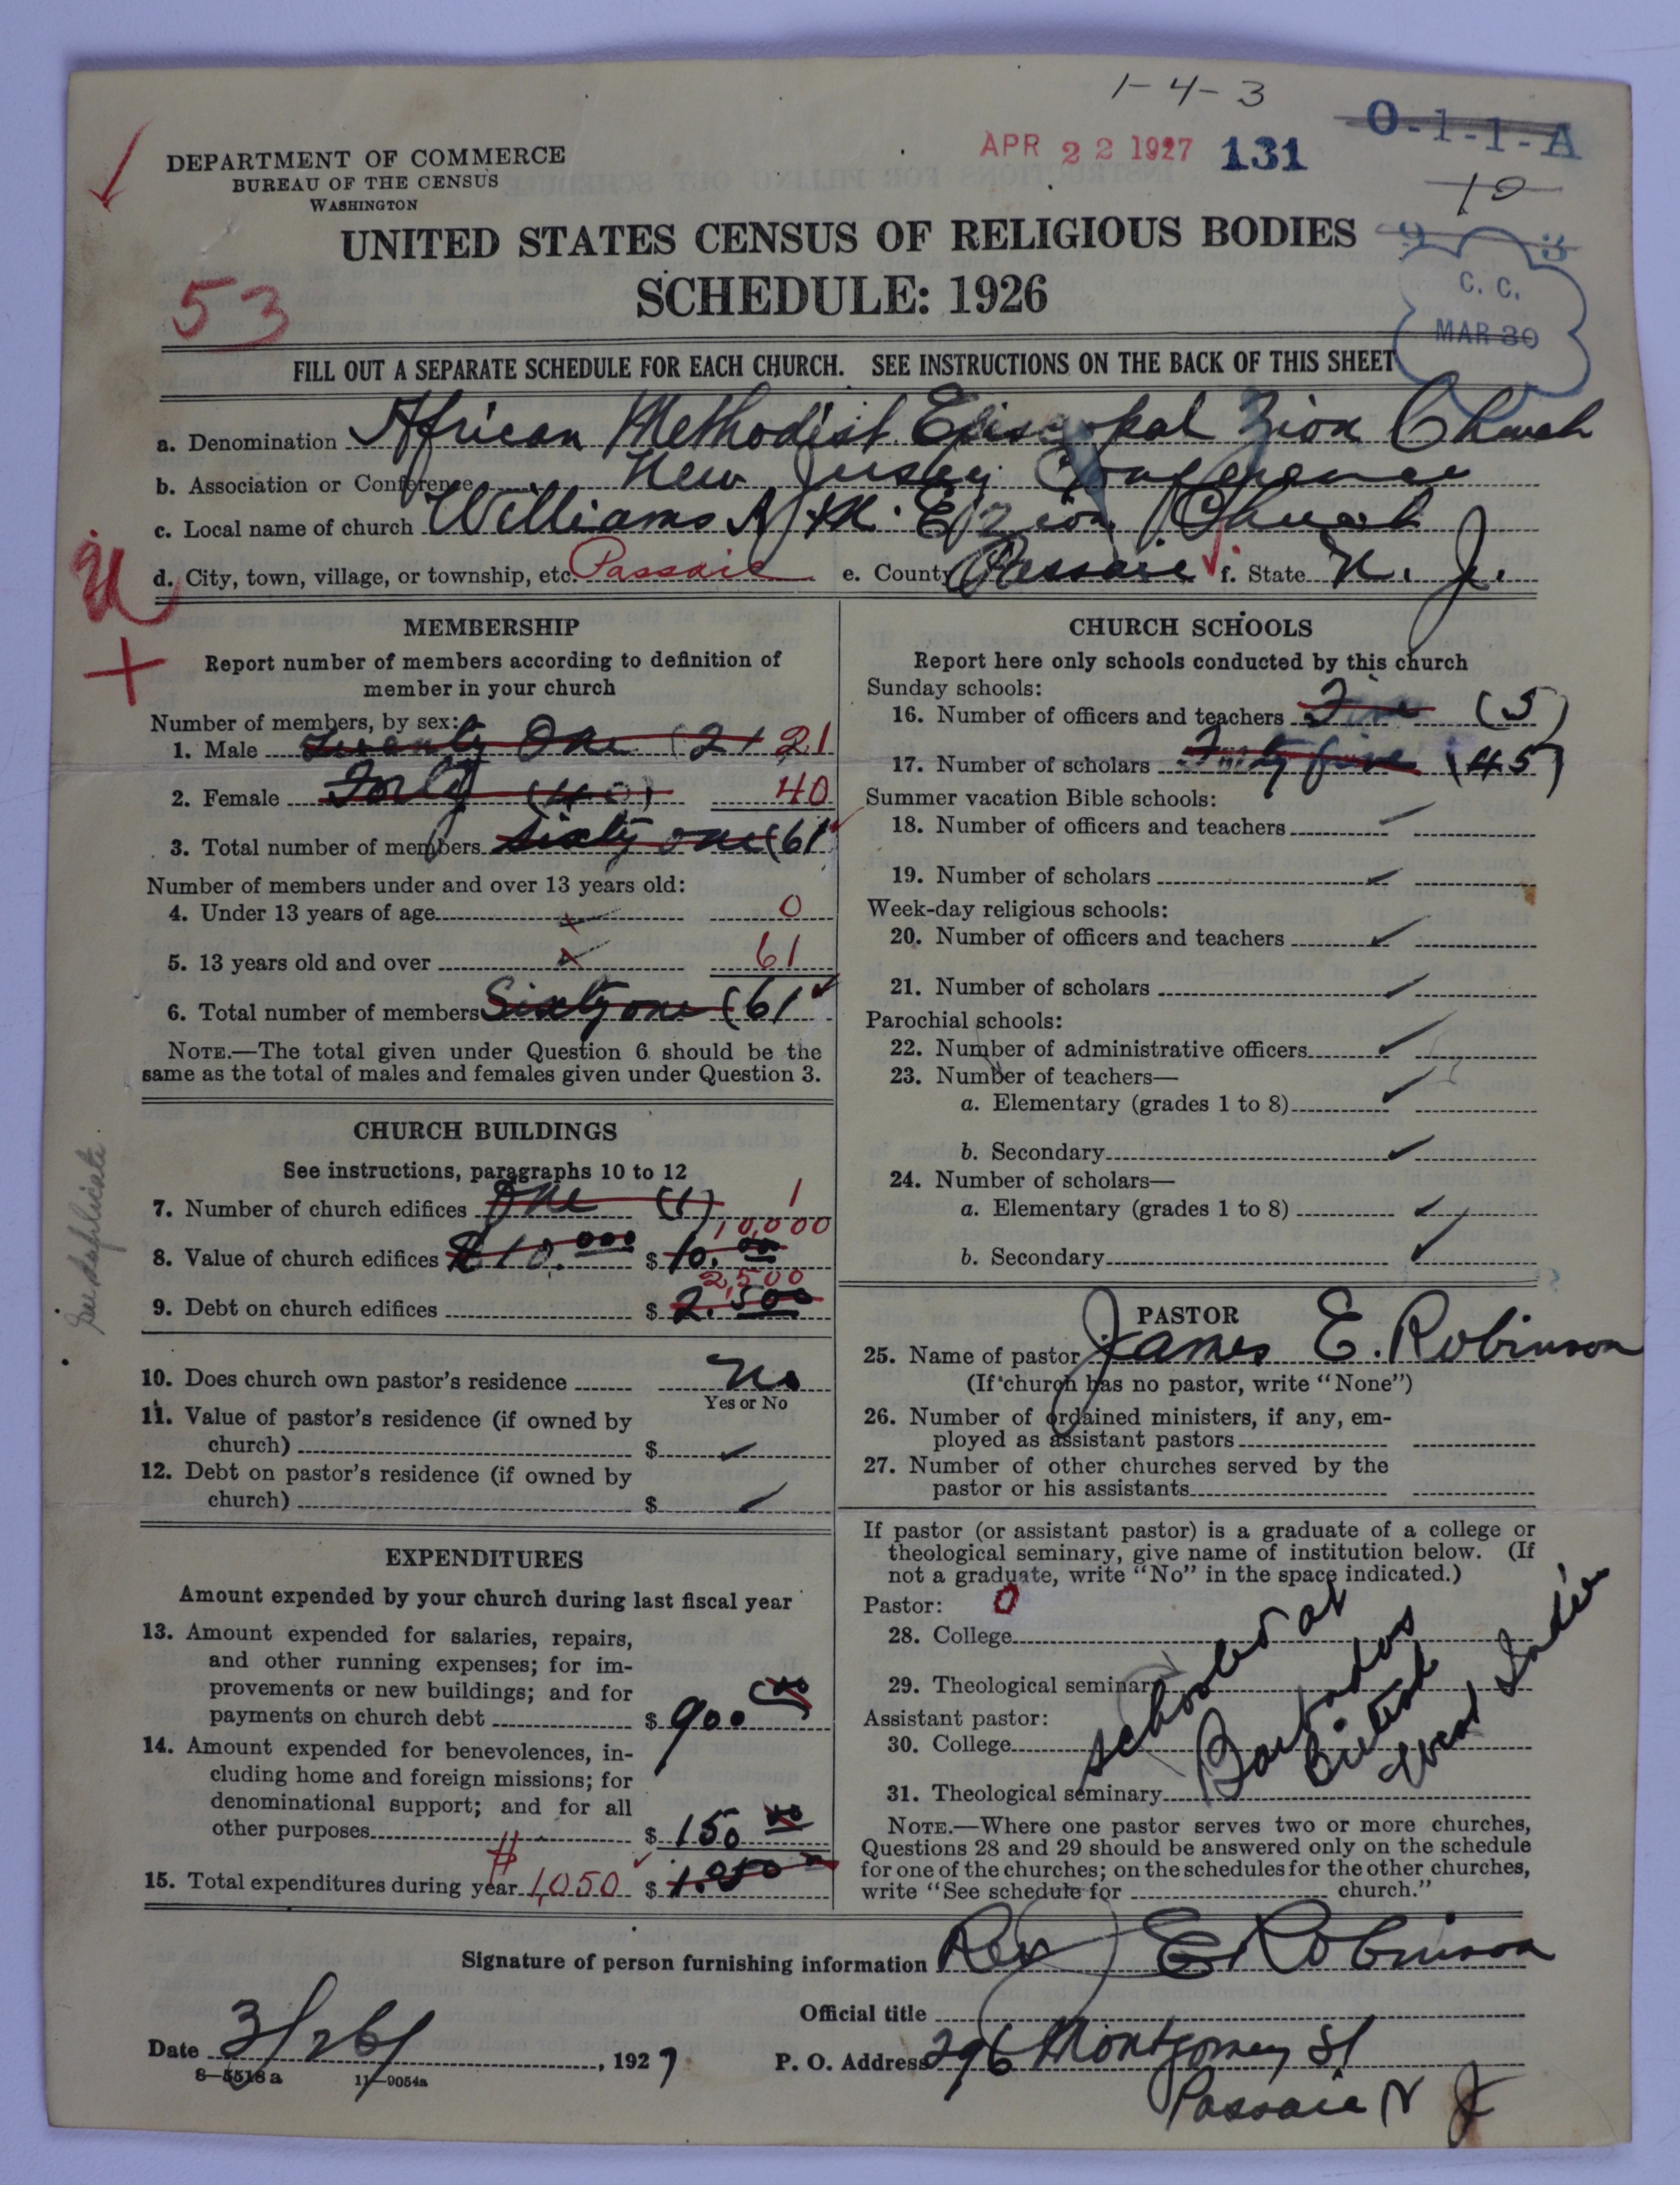 1-4-3
APR 22 1927 131 0-1-1-A
10
DEPARTMENT OF COMMERCE
BUREAU OF THE CENSUS
WASHINGTON
UNITED STATES CENSUS OF RELIGIOUS BODIES
9 3
SCHEDULE: 1926
53
C. C.
MAR 30
FILL OUT A SEPARATE SCHEDULE FOR EACH CHURCH. SEE INSTRUCTIONS ON THE BACK OF THIS SHEET
a. Denomination African Methodist Episcopal Zion Church
b. Association or Conference New Jersey Conference
c. Local name of church Williams A.M.E. Zion Church
d. City, town, village, or township, etc. Passaic e. County Passaic f. State N. J.
MEMBERSHIP
Report number of members according to definition of
member in your church
Number of members, by sex:
1. Male Twenty One (21 21
2. Female Forty (40) 40
3. Total number of members Sixty one (61
Number of members under and over 13 years old:
4. Under 13 years of age 0
5. 13 years old and over 61
6. Total number of members Sixty one (61
NOTE.—The total given under Question 6 should be the
same as the total of males and females given under Question 3.
CHURCH BUILDINGS
See instructions, paragraphs 10 to 12
7. Number of church edifices One (1) 1
10,000
8. Value of church edifices $10.000 $ 10.000
2,500
9. Debt on church edifices $ 2.500
See duplicate.
10. Does church own pastor's residence No
Yes or No
11. Value of pastor's residence (if owned by
church) $
12. Debt on pastor's residence (if owned by
church) $
EXPENDITURES
Amount expended by your church during last fiscal year
13. Amount expended for salaries, repairs,
and other running expenses; for im-
provements or new buildings; and for
payments on church debt $ 900 00
14. Amount expended for benevolences, in-
cluding home and foreign missions; for
denominational support; and for all
other purposes $ 150 00
15. Total expenditures during year 1,050 $ 1.050
CHURCH SCHOOLS
Report here only schools conducted by this church
Sunday schools:
16. Number of officers and teachers Five (5)
17. Number of scholars Forty five (45)
Summer vacation Bible schools:
18. Number of officers and teachers
19. Number of scholars
Week-day religious schools:
20. Number of officers and teachers
21. Number of scholars
Parochial schools:
22. Number of administrative officers
23. Number of teachers—
a. Elementary (grades 1 to 8)
b. Secondary
24. Number of scholars—
a. Elementary (grades 1 to 8)
b. Secondary
PASTOR
25. Name of pastor James E. Robinson
(If church has no pastor, write "None")
26. Number of ordained ministers, if any, em-
ployed as assistant pastors
27. Number of other churches served by the
pastor or his assistants
If pastor (or assistant pastor) is a graduate of a college or
theological seminary, give name of institution below. (If
not a graduate, write "No" in the space indicated.)
Pastor: 0
28. College
29. Theological seminary
Assistant pastor:
30. College
31. Theological seminary
at
Barbados
British
West Indies
NOTE.—Where one pastor serves two or more churches,
Questions 28 and 29 should be answered only on the schedule
for one of the churches; on the schedules for the other churches,
write "See schedule for church."
Signature of person furnishing information Rev J E Robinson
Official title
Date 3/26/, 1927
P. O. Address 296 Montgomery St
Passaic N J
8—5518a 11—9054a